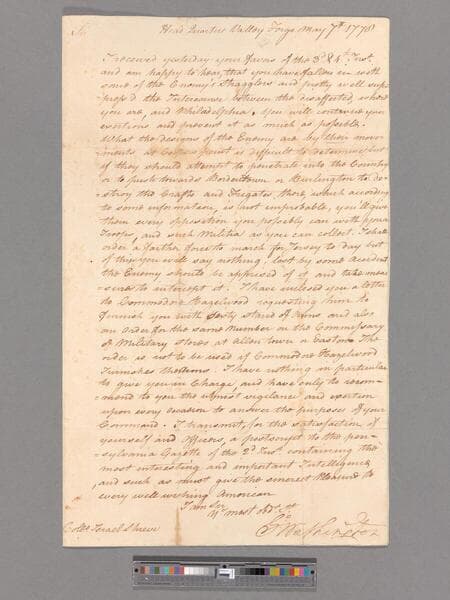 Sir
Head Quarters Valley Forge May 7th 1778
I received yesterday your favors of the 3d & 4th Inst.
and am happy to hear, that you have fallen in with
some of the Enemy's Stragglers and pretty well sup-
press'd the Intercourse between the disaffected, where
you are, and Philadelphia; You will continue your
exertions and prevent it as much as possible.
What the designs of the Enemy are by their move-
ments at Cooper's point is difficult to determine but
if they should attempt to penetrate into the Country
or to push towards Bordentown or Burlington to de-
stroy the Crafts and Frigates there, which according
to some information, is not improbable, you'll give
them every opposition you possibly can with your
Troops, and such Militia as you can collect. I shall
order a farther force to march for Jersey to day but
of this you will say nothing, lest by some accident
the Enemy should be apprised of it and take mea-
sures to intercept it. I have inclosed you a letter
to Commodore Hazelwood requesting him to
furnish you with stand of Arms and also
an Order for the same Number on the Commissary
of Military Stores at Allen town or Easton. The
order is not to be used if Commodore Hazelwood
furnishes the Arms. I have nothing in particular
to give you in Charge, and have only to recom-
mend to you the utmost vigilance and exertion
upon every occasion to answer the purposes of your
Command. I transmit, for the satisfaction of
yourself and Officers, a postscript to the pen-
sylvania Gazette of the 2d Inst. containing the
most interesting and important Intelligence,
and such as must give the sincerest pleasure to
every well wishing American
I am Sir
Yr most Obt St
Go Washington
Collo Israel Shreve